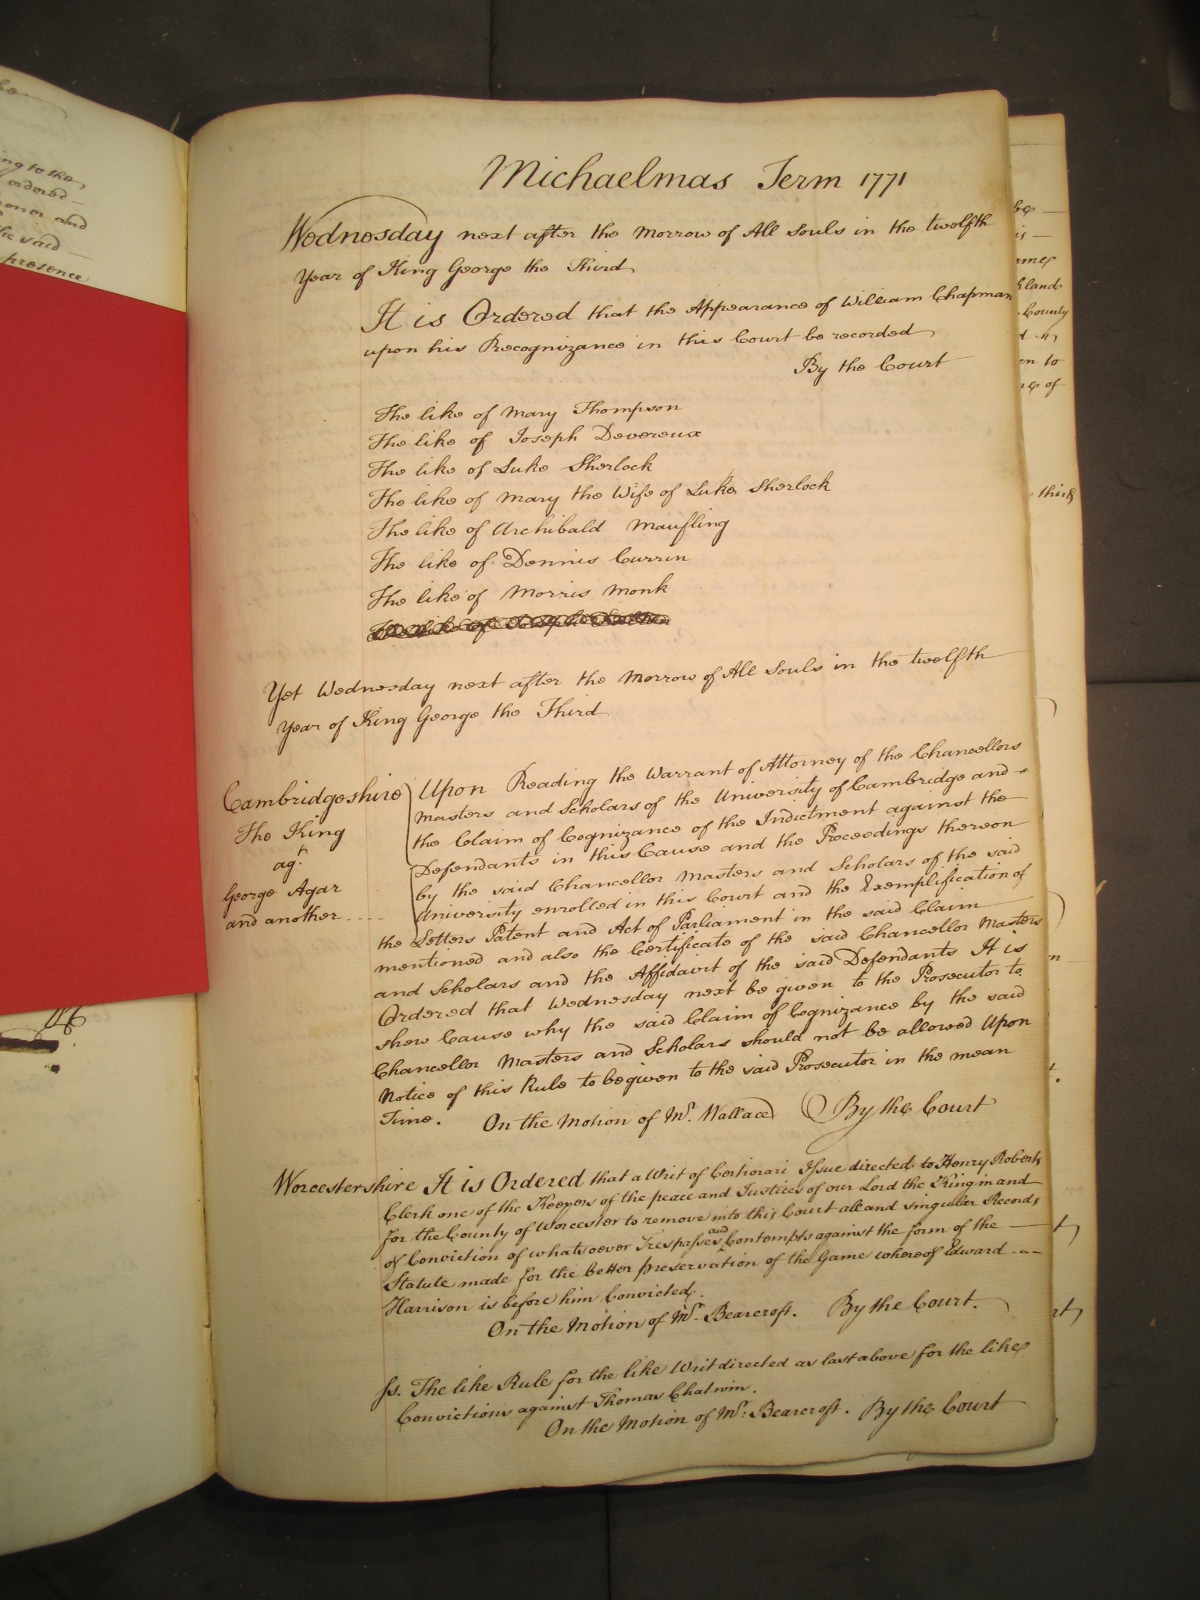 Michaelmas Term 1771
Wednesday next after the Morrow of All Souls in the twelfth
Year of King George the Third
It is Ordered that the Appearance of William Chapman
upon his Recognizance in this Court be recorded
By the Court
The like of Mary Thompson
The like of Joseph Devereux
The like of Luke Sherlock
The like of Mary the Wife of Luke Sherlock
The like of Archibald Maufling
The like of Dennis Currin
The like of Morris Monk
Yet Wednesday next after the Morrow of All Souls in the twelfth
Year of King George the Third
Cambridgeshire
The King
agt
George Agar
and another
Upon Reading the Warrant of Attorney of the Chancellors
Masters and Scholars of the University of Cambridge and
the Claim of Cognizance of the Indictment against the
Defendants in this Cause and the Proceedings thereon
by the said Chancellor Masters and Scholars of the said
University enrolled in this Court and the Exemplification of
the Letters Patent and Act of Parliament in the said Claim
mentioned and also the Certificate of the said Chancellor Masters
and Scholars and the Affidavit of the said Defendants It is
Ordered that Wednesday next be given to the Prosecutor to
shew Cause why the said Claim of Cognizance by the said
Chancellor Masters and Scholars should not be allowed Upon
Notice of this Rule to be given to the said Prosecutor in the mean
Time. On the Motion of Mr. Wallace By the Court
Worcestershire It is Ordered that a Writ of Certiorari Issue directed to Henry Roberts
Clerk one of the Keepers of the peace and Justices of our Lord the King in and
for the County of Worcester to remove into this Court all and singular Records
of Conviction of whatsoever Trespasses and Contempts against the form of the
Statute made for the better preservation of the Game whereof Edward
Harrison is before him Convicted.
On the Motion of Mr. Bearcroft. By the Court.
ss. The like Rule for the like Writ directed as last above for the like
Convictions against Thomas Chatwin.
On the Motion of Mr. Bearcroft. By the Court